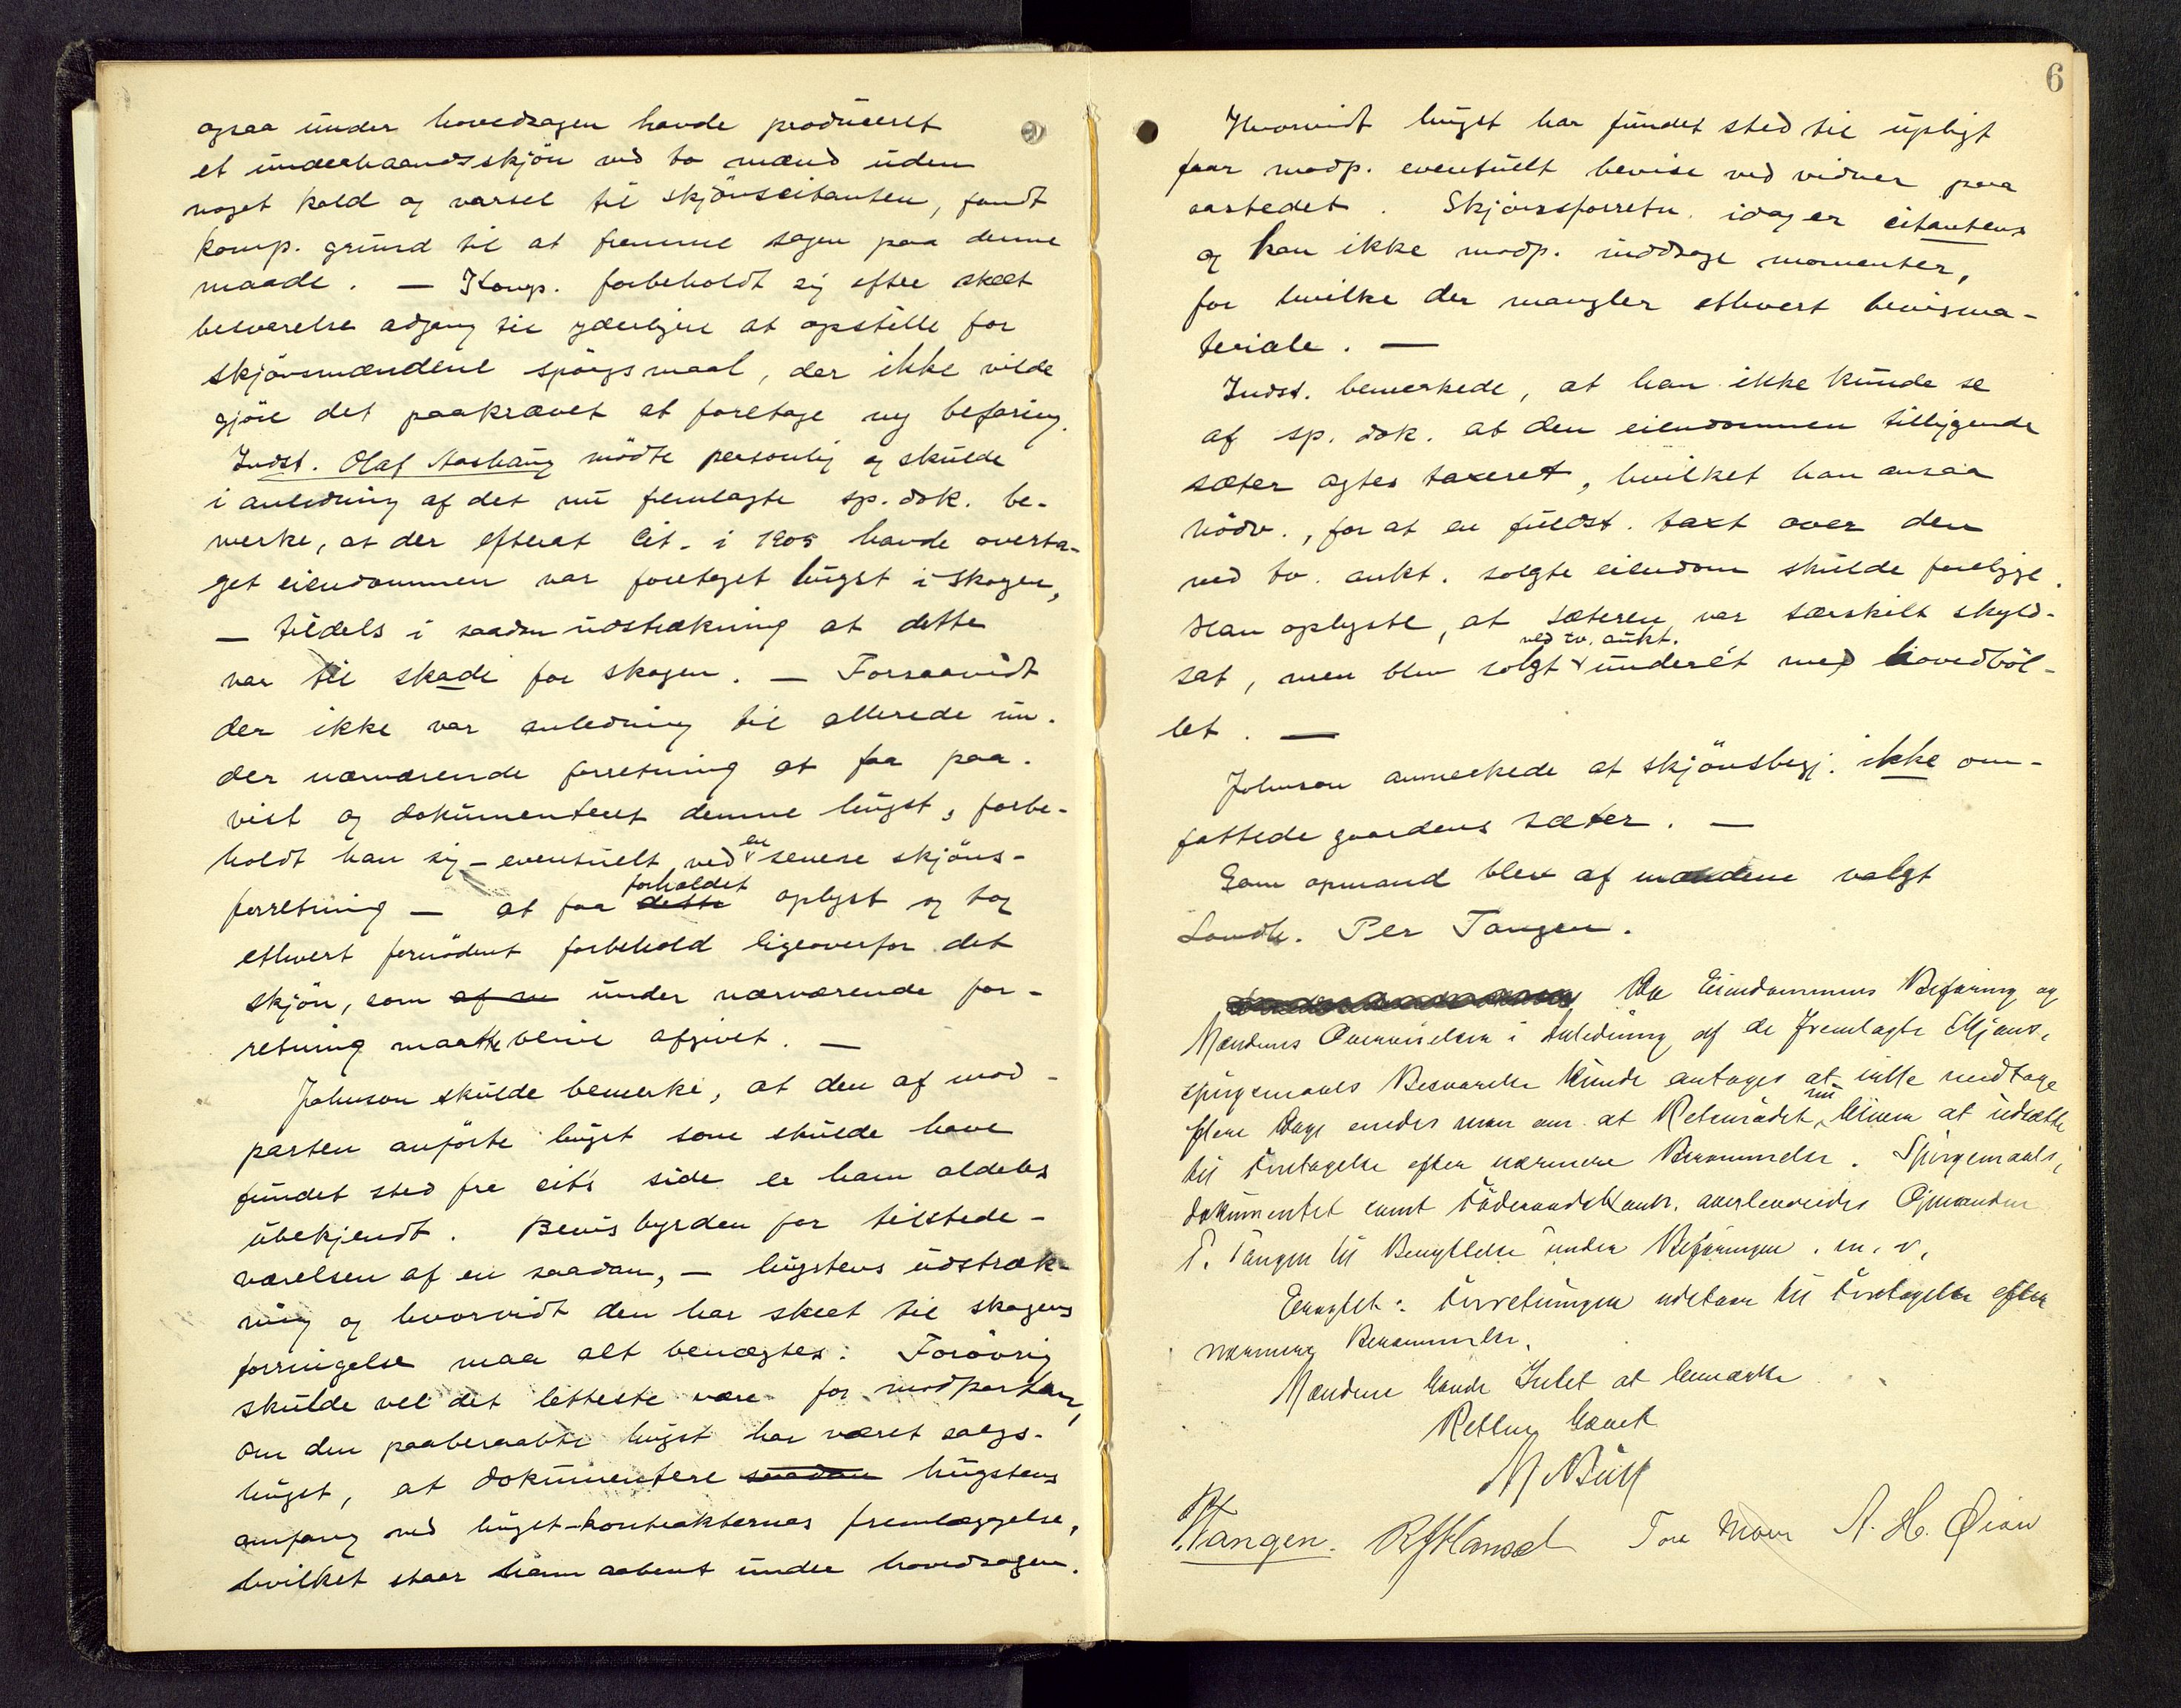 ogsaa under hovedsagen havde produceret
et underhaandsskjön ved to mænd uden
noget kald og varsel til skjönscitanten, fandt
komp. grund til at fremme sagen paa denne
maade. — Komp. forbeholdt sig efter skeet
besvarelse adgang til yderligere at opstille for
skjönsmændene spörgsmaal, der ikke vilde
gjöre det paakrævet at foretage ny befaring.
Indst. Olaf Aashaug mödte personlig og skulde
i anledning af det nu fremlagte sp. dok. be-
merke, at der efterat Cit. i 1905 havde overta-
get eiendommen var foretaget hugst i skogen,
— tildels i saadan udstrækning at dette
var til skade for skogen. — Forsaavidt
der ikke var anledning til allerede un-
der nærværende forretning at faa paa-
vist og dokumenteret denne hugst, forbe-
holdt han sig – eventuelt ved en senere skjöns-
forretning — at faa dette forholdet oplyst og tog
ethvert fornödent forbehold ligeoverfor det
skjön, som af nu under nærværende for-
retning maatte blive afgivet. —
Johnson skulde bemerke, at den af mod-
parten anförte hugst som skulde have
fundet sted fra cits side er ham aldeles
ubekjendt. Bevisbyrden for tilstede-
værelsen af en saadan, — hugstens udstræk-
ning og hvorvidt den har skeet til skogens
forringelse maa alt benægtes. Forövrig
skulde vel det letteste være for modparten,
om den paaberaabte hugst har været salgs-
hugst, at dokumentere saadan hugstens
omfang ved hugst-kontrakternes fremlæggelse,
hvilket staar ham aabent under hovedsagen.
6
Hvorvidt hugst har fundet sted til upligt
faar modp. eventuelt bevise ved vidner paa
aastedet. Skjönsforretn. idag er citantens
og kan ikke modp. inddrage momenter,
for hvilke der mangler ethvert bevisma-
teriale. —
Indst. bemerkede, at han ikke kunde se
af sp. dok. at den eiendommen tilliggende
sæter agtes taxeret, hvilket han ansaa
nödv., for at en fuldst. taxt over den
ved tv. aukt. solgte eiendom skulde foreligge.
Han oplyste, at sæteren var særskilt skyld-
sat, men blev solgt ved tv. aukt. underet med hovedböl-
let. —
Johnson anmerkede at skjönsbegj. ikke om-
fattede gaardens sæter. —
Som opmand blev af mændene valgt
Landh. Per Tangen.
Da Eiendommens Befaring og
Mændenes Overveielser i Anledning af de fremlagte Skjöns-
spörgsmaals Besvarelse kunde antages at ville medtage
flere Dage enedes man om at Retmödet nu bliver at udsætte
til Foretagelse efter nærmere Berammelse. Spörgsmaals-
dokumentet samt overleveredes Opmanden
P. Tangen til Benyttelse under Befaringen. m. v.
Eragtet: Forretningen udstaar til Foretagelse efter
nærmere Berammelse.
Mændene havde Intet at bemærke
Retten hævet
M Bull
P Tangen. Tore Moen A. H. Öian